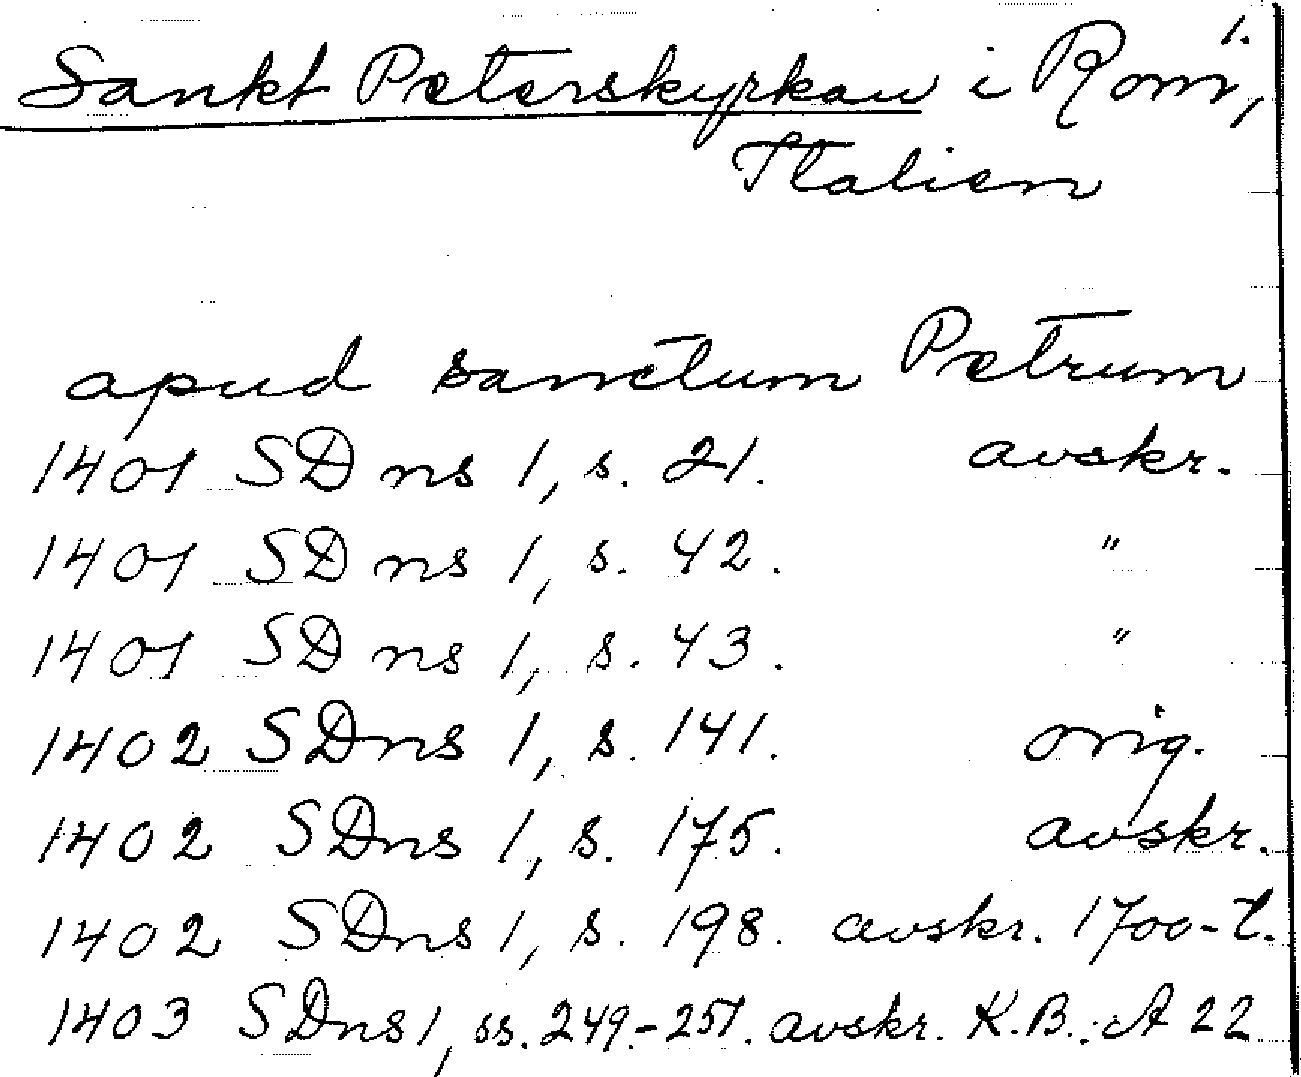 1.
Sankt Peterskyrkan i Rom,
Italien
apud sanctum Petrum
1401 SD ns 1, s. 21. avskr.
1401 SD ns 1, s. 42. "
1401 SD ns 1, s. 43. "
1402 SD ns 1, s. 141. orig.
1402 SD ns 1, s. 175. avskr.
1402 SD ns 1, s. 198. avskr. 1700-t.
1403 SD ns 1, ss. 249.-251. avskr. K.B.: A 22